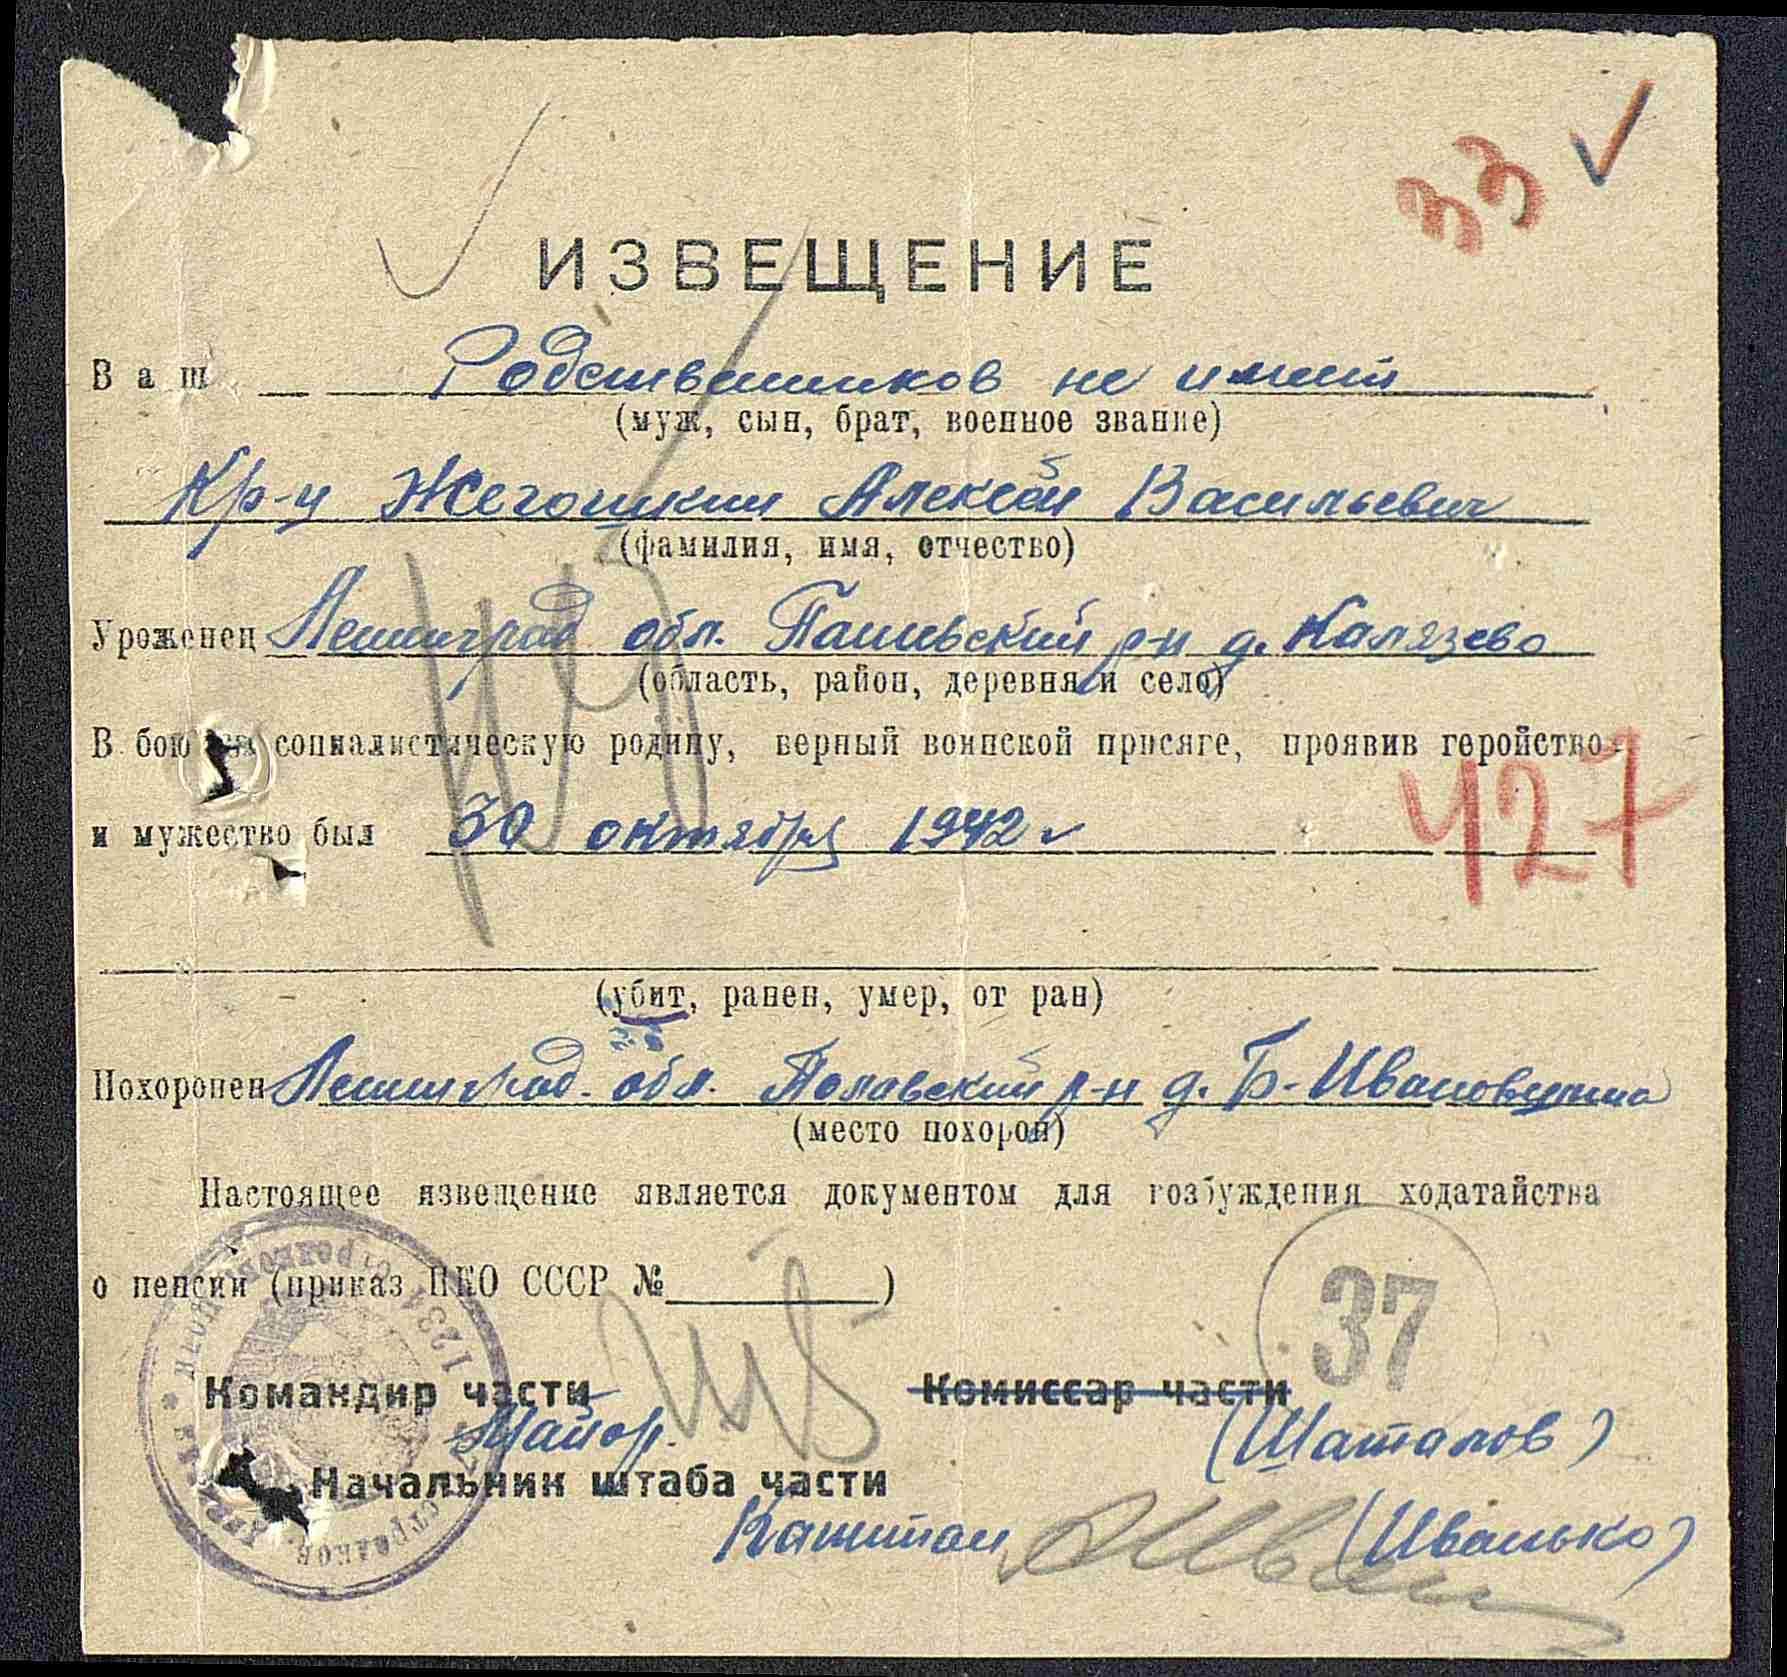 33
ИЗВЕЩЕНИЕ
Ваш Родственников не имеет
(муж, сын, брат, военное звание)
Кр-ц Жегошкин Алексей Васильевич
(фамилия, имя, отчество)
Уроженец Ленинград обл. Пашский р-н д. Калязево
(область, район, деревня и село)
В бою за социалистическую родину, верный воинской присяге, проявив геройство
и мужество был 30 октября 1942 г
427
(убит, ранен, умер, от ран)
Похоронен Ленинград. обл. Полавский р-н д. Б-Ивановщина
(место похорон)
Настоящее извещение является документом для возбуждения ходатайства
о пенсии (приказ НКО СССР № )
37
Командир части Комиссар части
Майор. (Шаталов)
Начальник штаба части
Капитан (Иванько)
1234